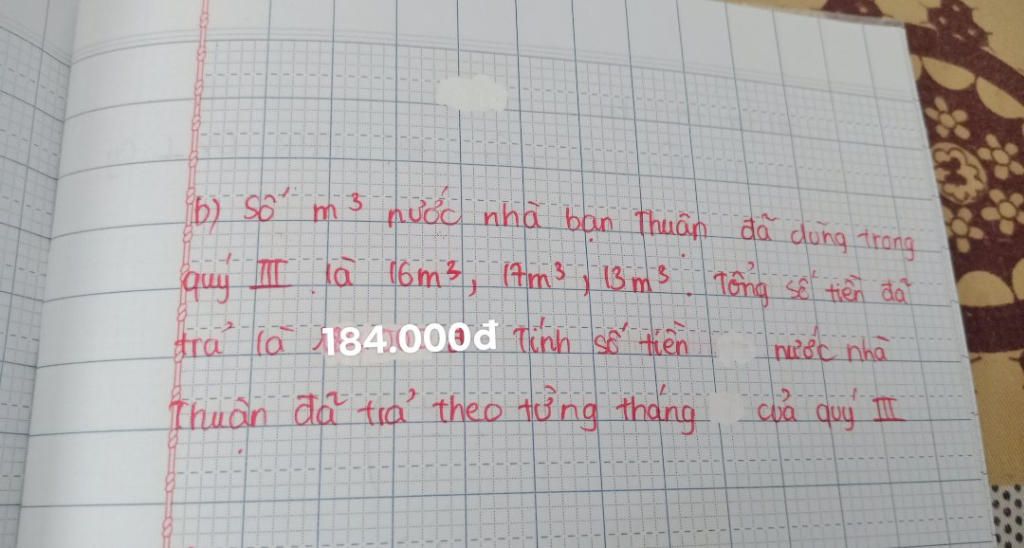 b) Số m³ nước nhà bạn Thuận đã dùng trong
quý III là 16m³, 17m³, 13m³. Tổng số tiền đã
trả là 184.000đ Tính số tiền nước nhà
Thuận đã trả theo từng tháng của quý III